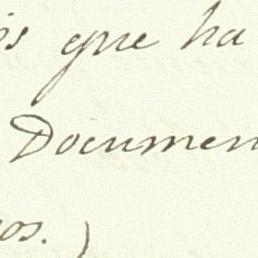 is que ha
Documen
os.)